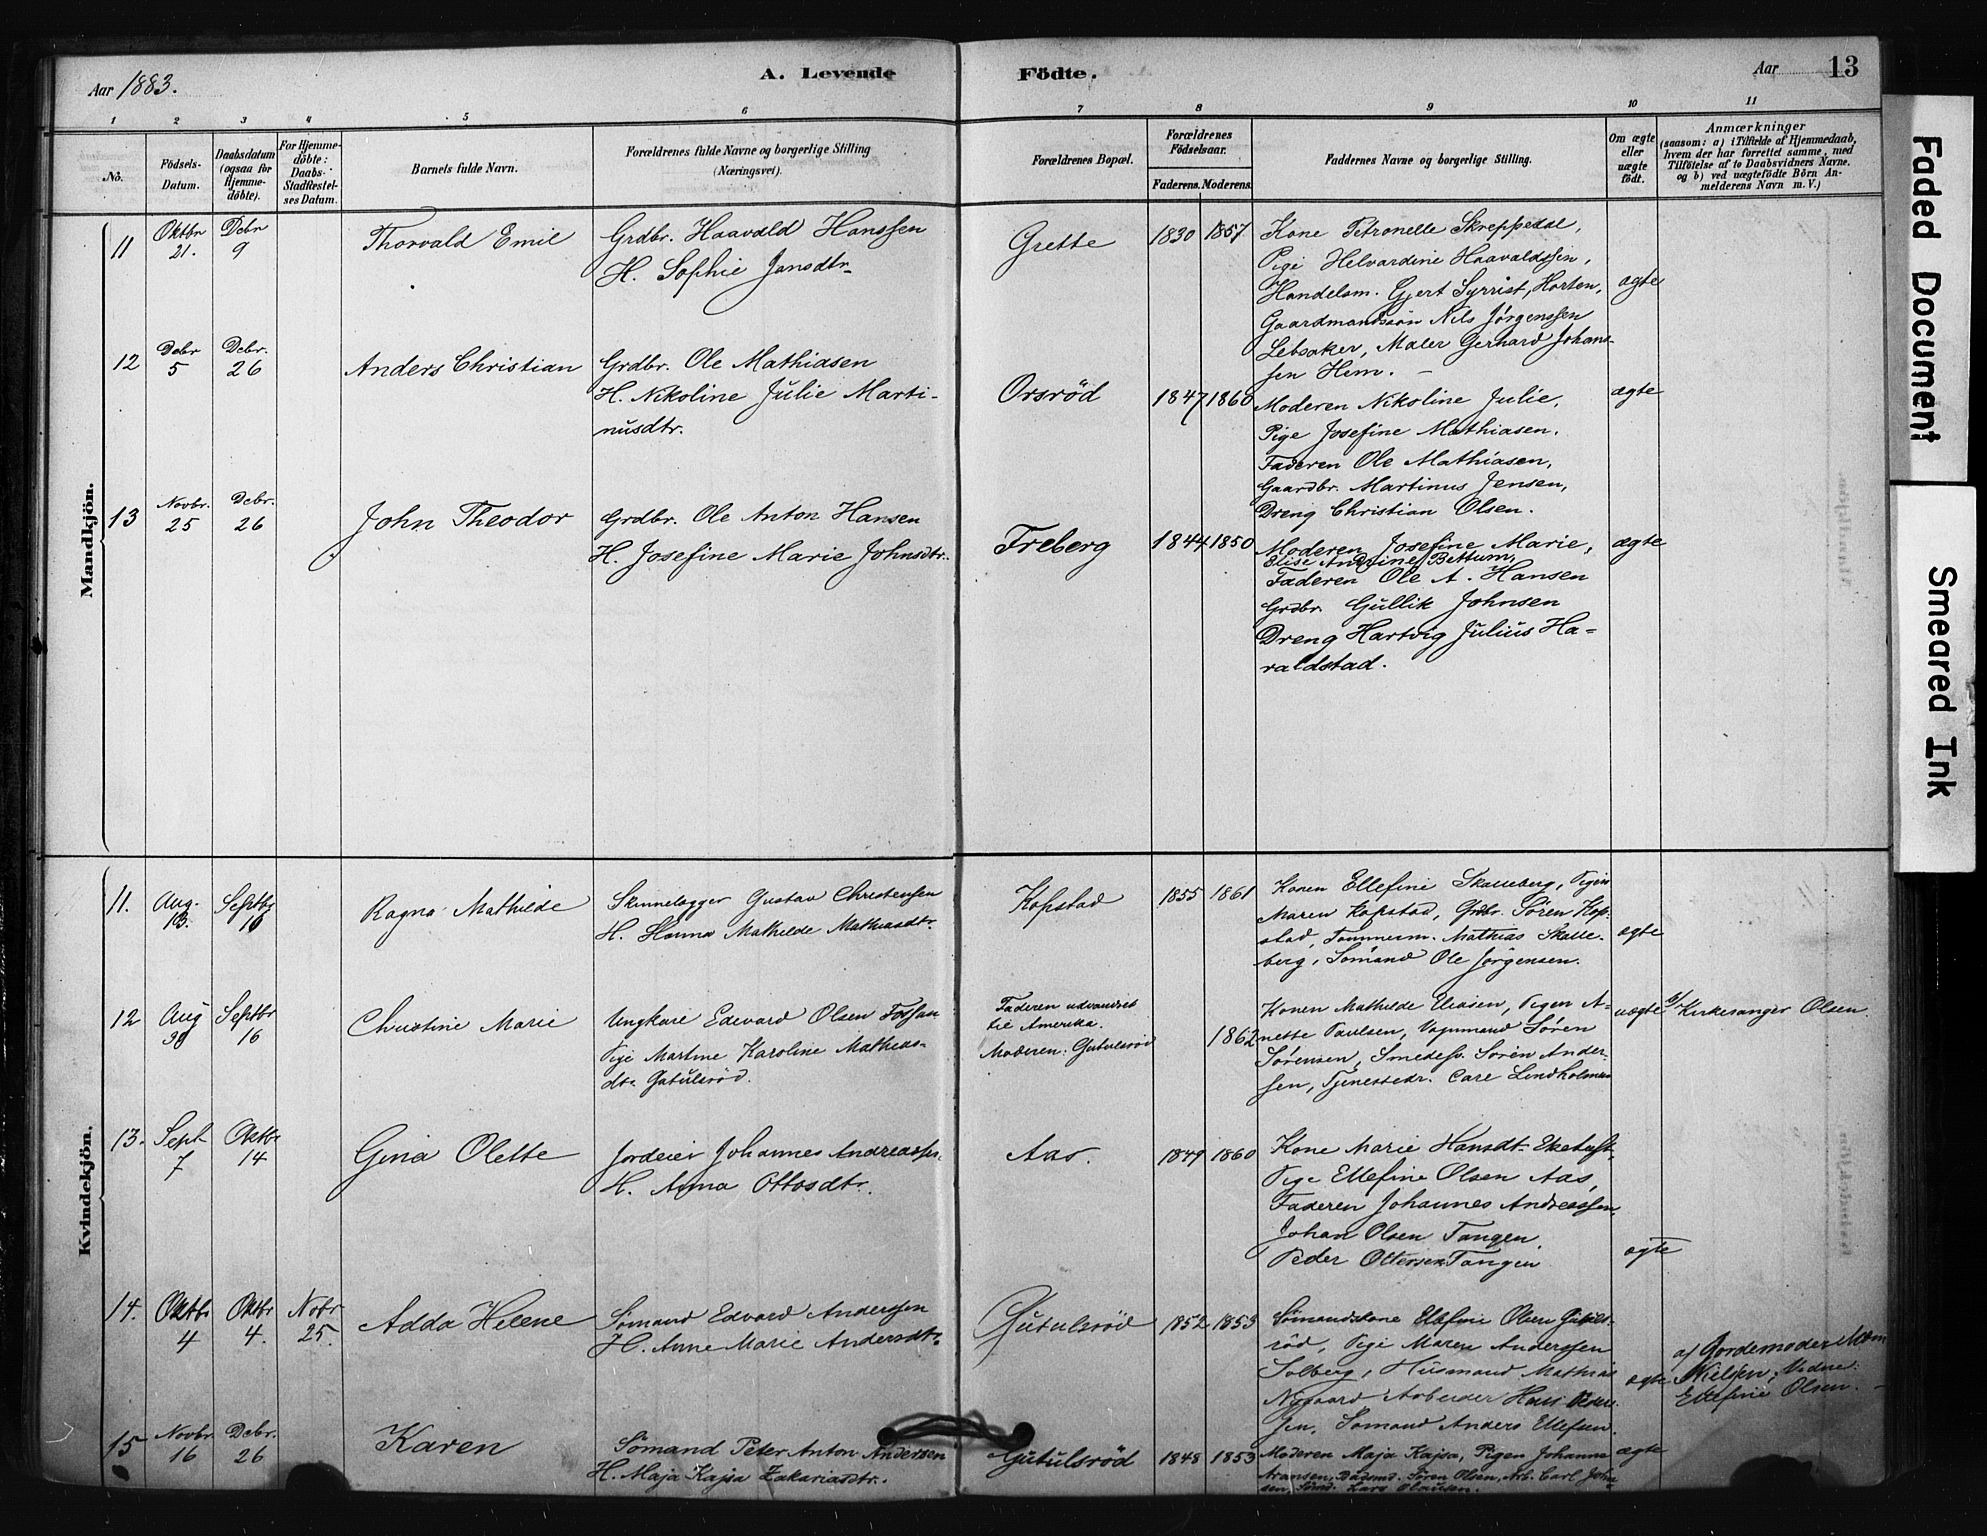 Aar 1883.
A. Levende
Födte.
Aar
13
1 2 3 4 5 6 7 8 9 10 11
No.
Födsels-
Datum.
Daabsdatum
(ogsaa for
Hjemme-
döbte).
For Hjemme-
döbte:
Daabs-
Stadfæstel-
ses Datum.
Barnets fulde Navn.
Forældrenes fulde Navne og borgerlige Stilling
(Næringsvei).
Forældrenes Bopæl.
Forældrenes
Födselsaar.
Faderens. Moderens.
Faddernes Navne og borgerlige Stilling.
Om ægte
eller
uægte
födt.
Anmærkninger
(saasom: a) i Tilfælde af Hjemmedaab,
hvem der har forrettet samme, med
Tilföielse af to Daabsvidners Navne.
og b) ved uægtefödte Börn An-
melderens Navn m. V.)
Mandkjön.
11
Oktbr
21.
Debr
9
Thorvald Emil
Grdbr. Haavald Hanssen
H. Sophie Jansdtr.
Grette
1830
1857
Kone Petronelle Skreppedal,
Pige Helvardine Haavaldssen,
Handelsm. Gjert Syrrist, Horten,
Gaardmandssøn Nils Jørgenssen
Lebsaker, Maler Gerhard Johans-
sen Hem.
ægte
12
Debr
5
Debr.
26
Anders Christian
Grdbr. Ole Mathiasen
H. Nikoline Julie Marti-
nusdtr.
Orsrød
1847
1860
Moderen Nikoline Julie,
Pige Josefine Mathiasen.
Faderen Ole Mathiasen,
Gaardbr. Martinus Jensen,
Dreng Christian Olsen.
ægte
13
Novbr.
25
Debr.
26
John Theodor
Grdbr. Ole Anton Hansen
H. Josefine Marie Johnsdtr.
Freberg
1844
1850
Moderen Josefine Marie,
Elise Andrine Bettum,
Faderen Ole A. Hansen
Grdbr. Gullik Johnsen
Dreng Hartvig Julius Ha-
raldstad.
ægte
Kvindekjön.
11.
Aug.
13.
Septbr
16
Ragna Mathilde
Skindelægger Gustav Christensen
H. Hanna Mathilde Mathiasdtr.
Kopstad
1855
1861
Konen Ellefine Skalleberg, Pigen
Maren Kopstad, Grdbr. Søren Kop-
stad, Tømmerm. Mathias Skalle-
berg, Sømand Ole Jørgensen.
ægte
12
Aug
30
Septbr
16
Christine Marie
Ungkarl Edevard Olsen Fossan
Pige Martine Karoline Mathias-
dtr. Gutulsrød.
Faderen udvandret
til Amerika.
Moderen: Gutulsrød
1862
Konen Mathilde Eliasen, Pigen A-
nette Paulsen, Vognmand Søren
Sørensen, Smedesv. Søren Ander-
sen, Tjenestedr. Carl Lindholman
uægte
b/ Kirkesanger Olsen
13.
Sept
7
Oktbr
14
Gina Olette
Jordeier Johannes Andreassen
H. Anna Ottosdtr.
Aas.
1849
1860
Kone Marie Hansdt.
Pige Ellefine Olsen Aas,
Faderen Johannes Andreassen,
Johan Olsen Tangen,
Peder Ottersen Tangen
ægte
14.
Oktbr
4
Oktbr
4.
Nobr
25.
Adda Helene
Sømand Edvard Anderssen
H. Anne Marie Andersdtr.
Gutulsrød
1852
1853
Sømandskone Ellefine Olsen Gutuls-
rød, Pige Maren Anderssen
Solberg, Husmand Mathias
Nygaard Arbeider Hans Peder-
sen, Sømand Anders Ellefsen.
ægte
a) Jordemoder
Nielsen; Vidne:
Ellefine Olsen.
15
Novbr.
16
Debr.
26
Karen
Sömand Peter Anton Andersen
H. Maja Kajsa Zakariasdtr.
Gutulsröd
1848
1853
Moderen Maja Kajsa, Pigen Johanna
Aronsen, Baadsmd. Søren Olsen, Arb. Carl John-
sen, Sömd. Lars Olausen.
ægte
Faded Document
Smeared Ink